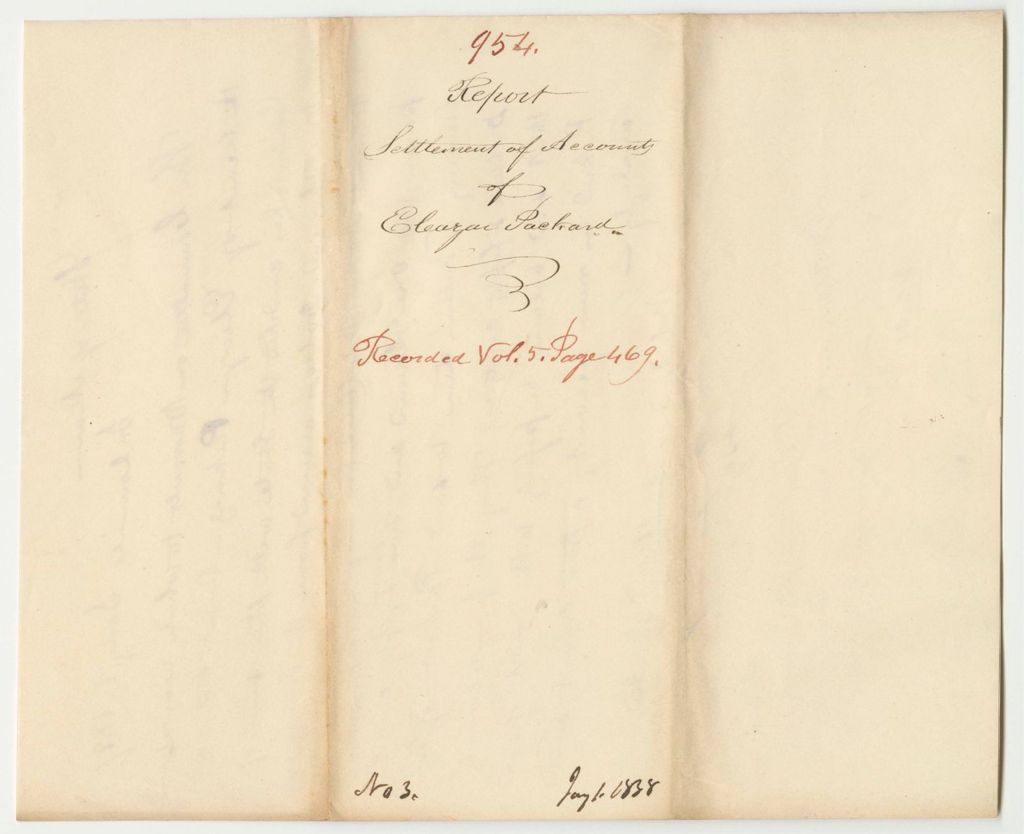 954.
Report
Settlement of Accounts
of
Eleazar Packard
Recorded Vol. 5. Page 469.
No 3.
Jany 1. 1838